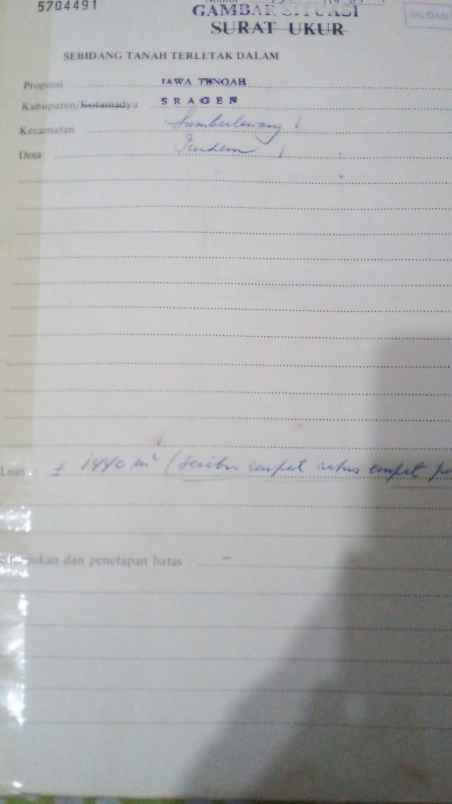 5704491
GAMBAR SITUASI
SURAT UKUR
SEBIDANG TANAH TERLETAK DALAM
Propinsi JAWA TENGAH
Kabupaten/Kotamadya SRAGEN
Kecamatan Sumberlawang
Desa
Luas ± 1440 m² (seribu empat ratus empat
dan penetapan batas –